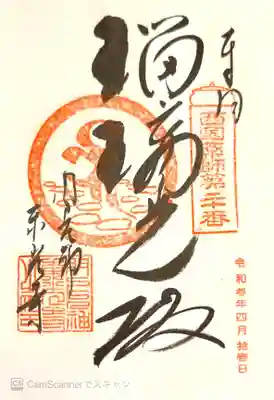 奉拝
西国薬師第二十番
瑠璃光殿
東光寺
令和参年四月拾壱日
CS CamScannerでスキャン